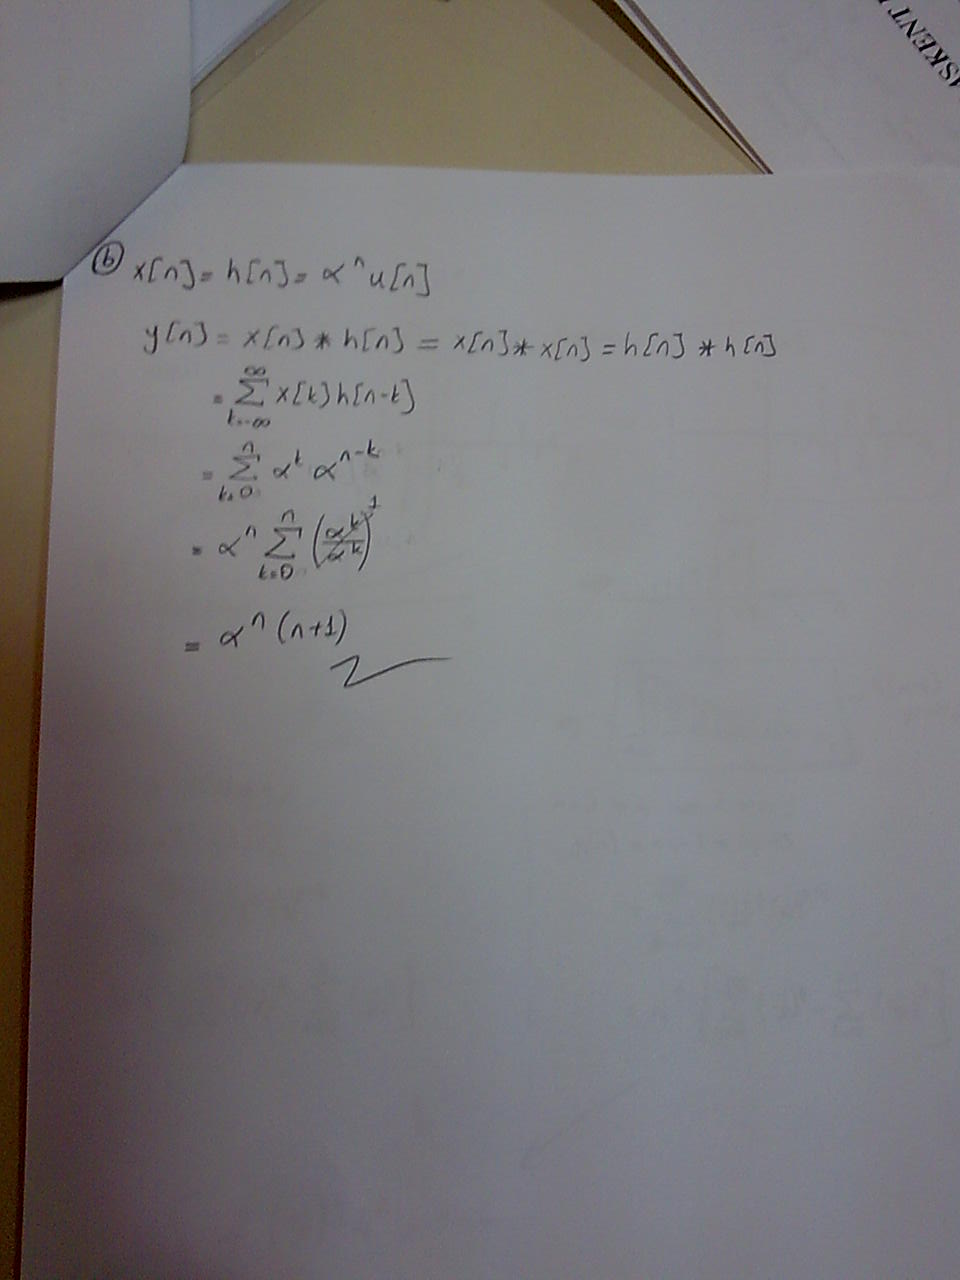 ASKENT
(b) x[n] = h[n] = αⁿ u[n]
y[n] = x[n] * h[n] = x[n] * x[n] = h[n] * h[n]
= ∑_{k=-∞}^{∞} x[k] h[n-k]
= ∑_{k=0}^{n} α^k α^{n-k}
= αⁿ ∑_{k=0}^{n} (α^k/α^k)^1
= αⁿ (n+1)